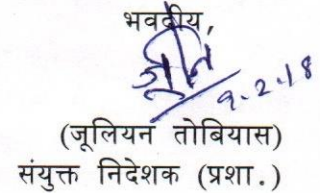 भवदीय,
9.2.18
(जूलियन तोबियास)
संयुक्त निदेशक (प्रशा.)